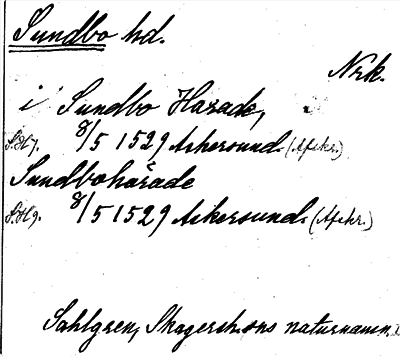 Sundbo hd.
Nrk.
i Sundbo Harade,
8/5 1529 Askersund (Afskr.)
Sundbohärade
8/5 1529 Askersund (Afskr.)
Sahlgren, Skagershons naturnamn.